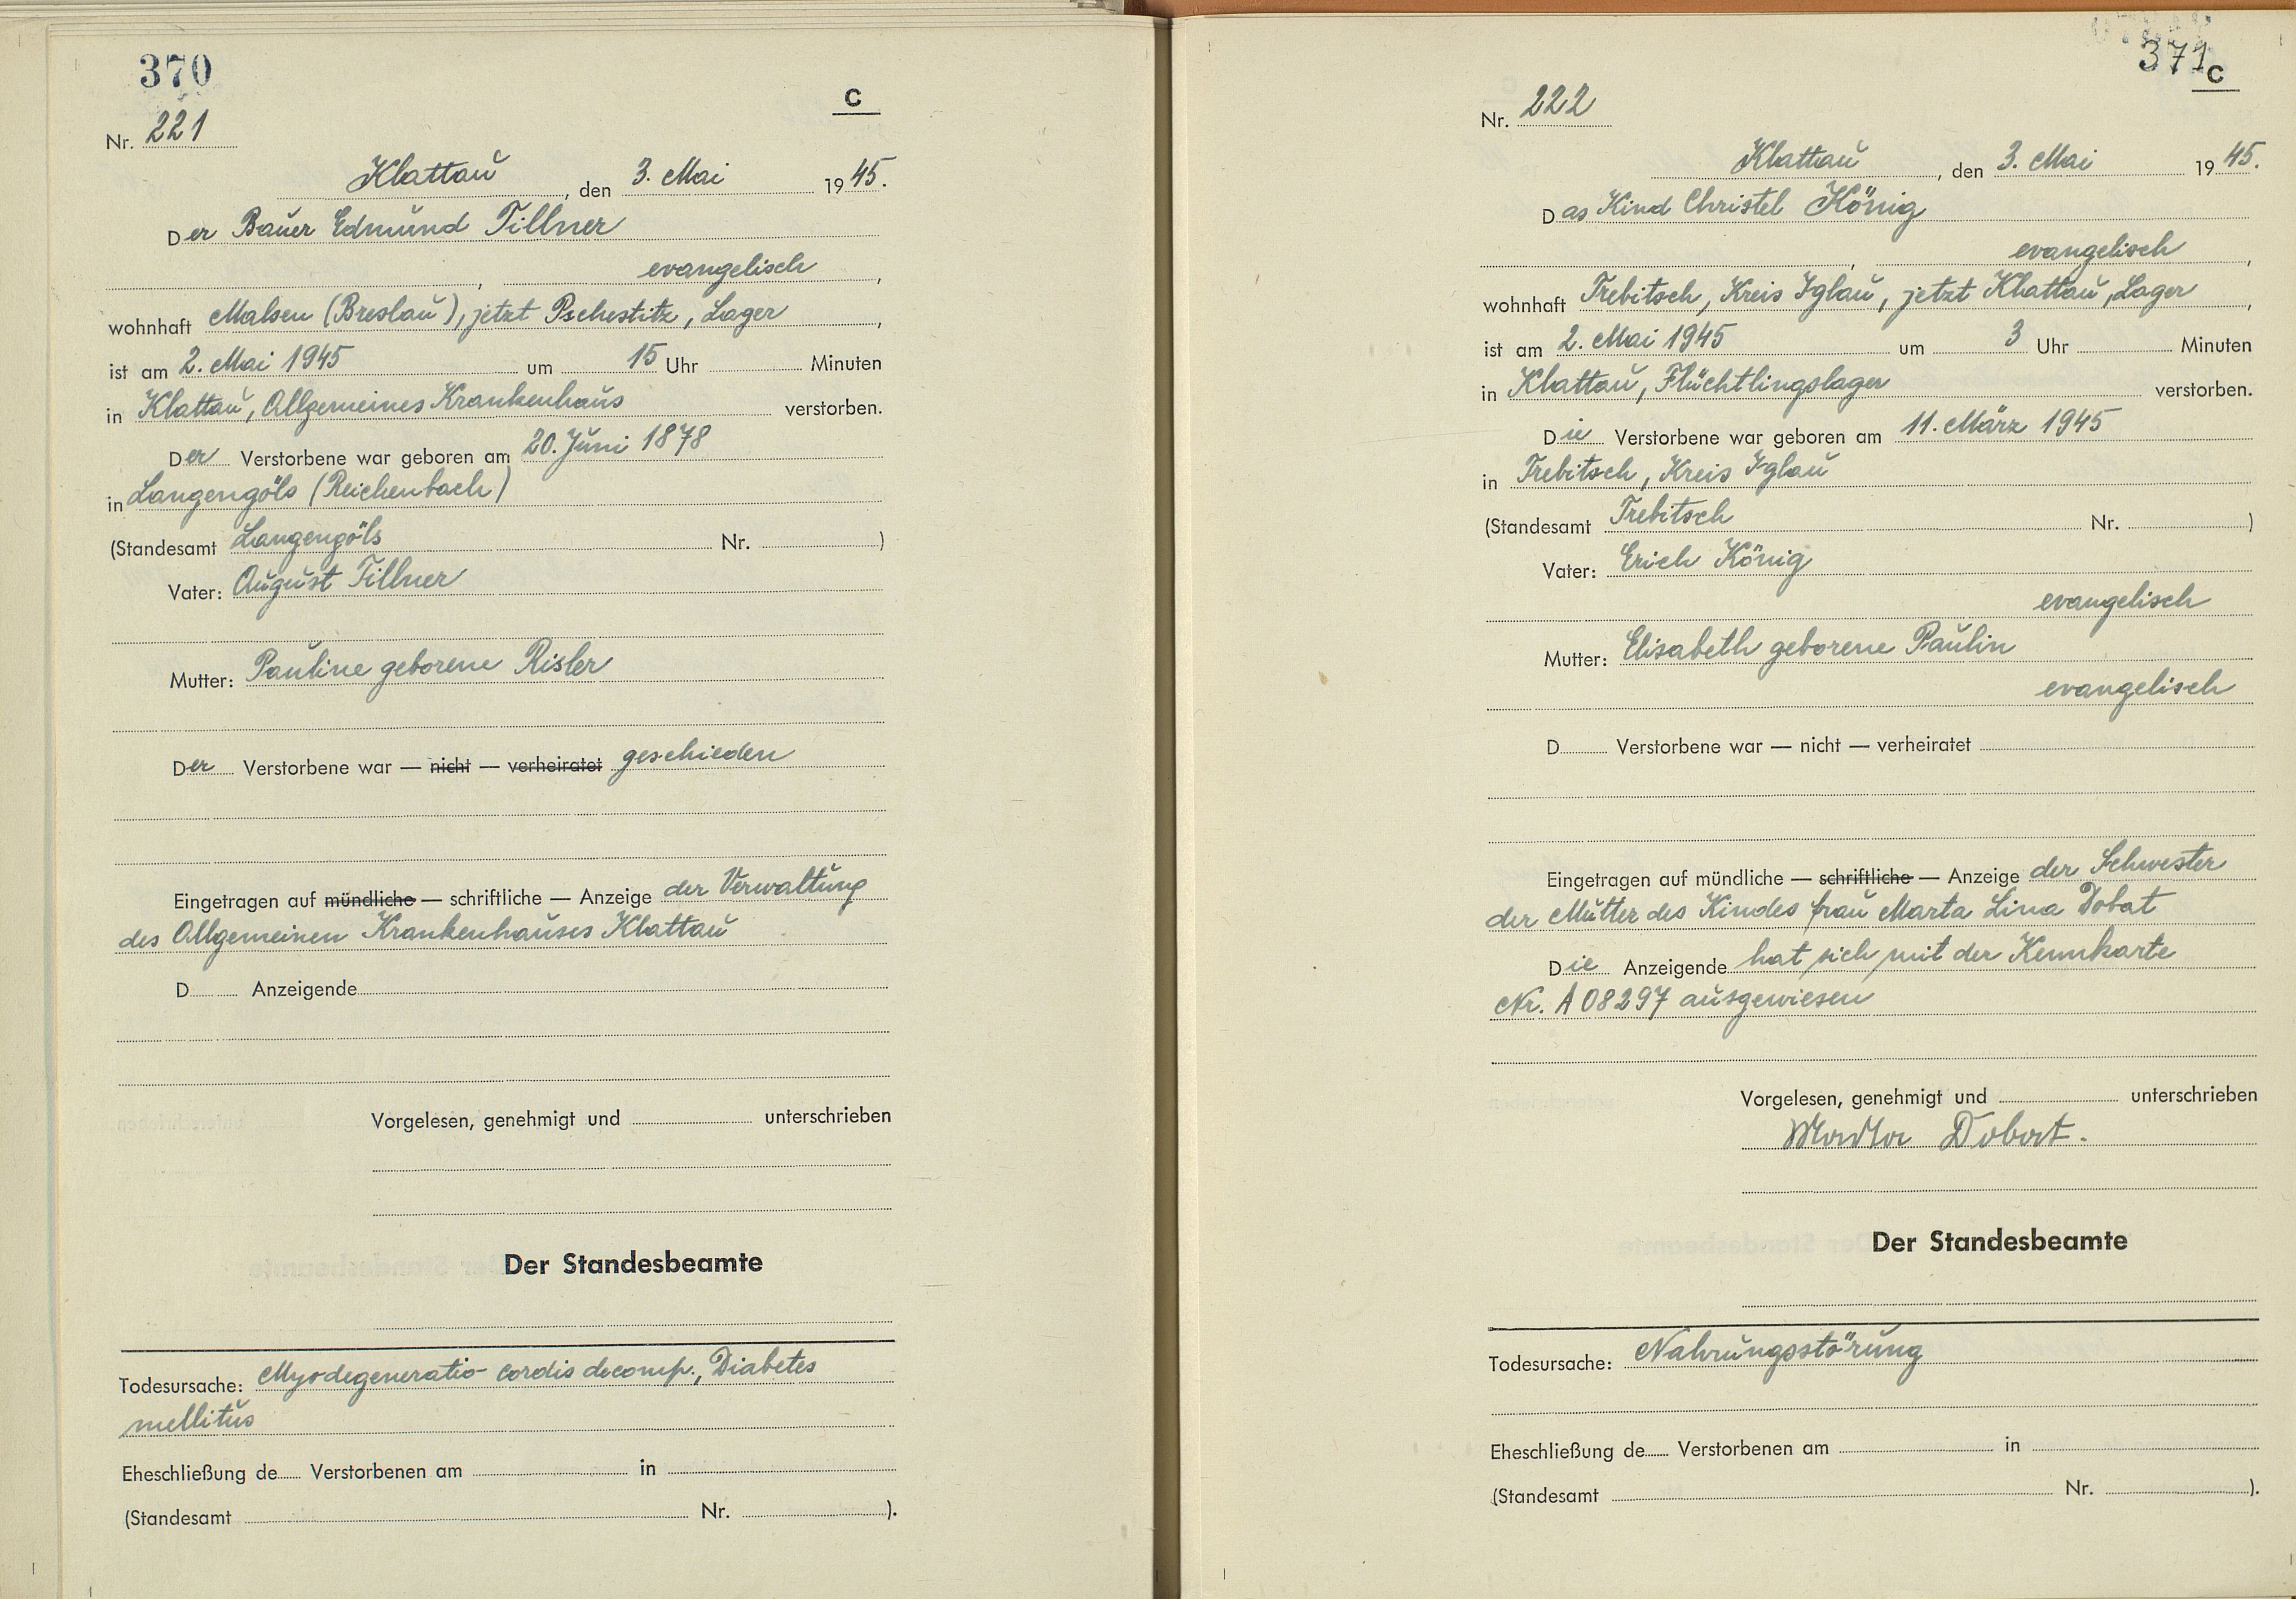 370
C
Nr. 221
Klattau, den 3. Mai 1945.
Der Bauer Edmund Tillner
, evangelisch,
wohnhaft Malsen (Breslau), jetzt Pschestitz, Lager,
ist am 2. Mai 1945 um 15 Uhr Minuten
in Klattau, Allgemeines Krankenhaus verstorben.
Der Verstorbene war geboren am 20. Juni 1878
in Langengöls (Reichenbach)
(Standesamt Langengöls Nr. )
Vater: August Tillner
Mutter: Pauline geborene Risler
Der Verstorbene war — nicht — verheiratet geschieden
Eingetragen auf mündliche — schriftliche — Anzeige der Verwaltung
des Allgemeinen Krankenhauses Klattau
D Anzeigende
Vorgelesen, genehmigt und unterschrieben
Der Standesbeamte
Todesursache: Myodegeneratio cordis decomp., Diabetes
mellitus
Eheschließung de Verstorbenen am in
(Standesamt Nr. ).
371
C
Nr. 222
Klattau, den 3. Mai 1945.
Das Kind Christel König
, evangelisch,
wohnhaft Trebitsch, Kreis Iglau, jetzt Klattau, Lager,
ist am 2. Mai 1945 um 3 Uhr Minuten
in Klattau, Flüchtlingslager verstorben.
Die Verstorbene war geboren am 11. März 1945
in Trebitsch, Kreis Iglau
(Standesamt Trebitsch Nr. )
Vater: Erich König
evangelisch
Mutter: Elisabeth geborene Paulin
evangelisch
D Verstorbene war — nicht — verheiratet
Eingetragen auf mündliche — schriftliche — Anzeige der Schwester
der Mutter des Kindes frau Marta Lina Dobat
Die Anzeigende hat sich mit der Kennkarte
Nr. A 08297 ausgewiesen
Vorgelesen, genehmigt und unterschrieben
Martha Dobat.
Der Standesbeamte
Todesursache: Nahrungsstörung
Eheschließung de Verstorbenen am in
(Standesamt Nr. ).